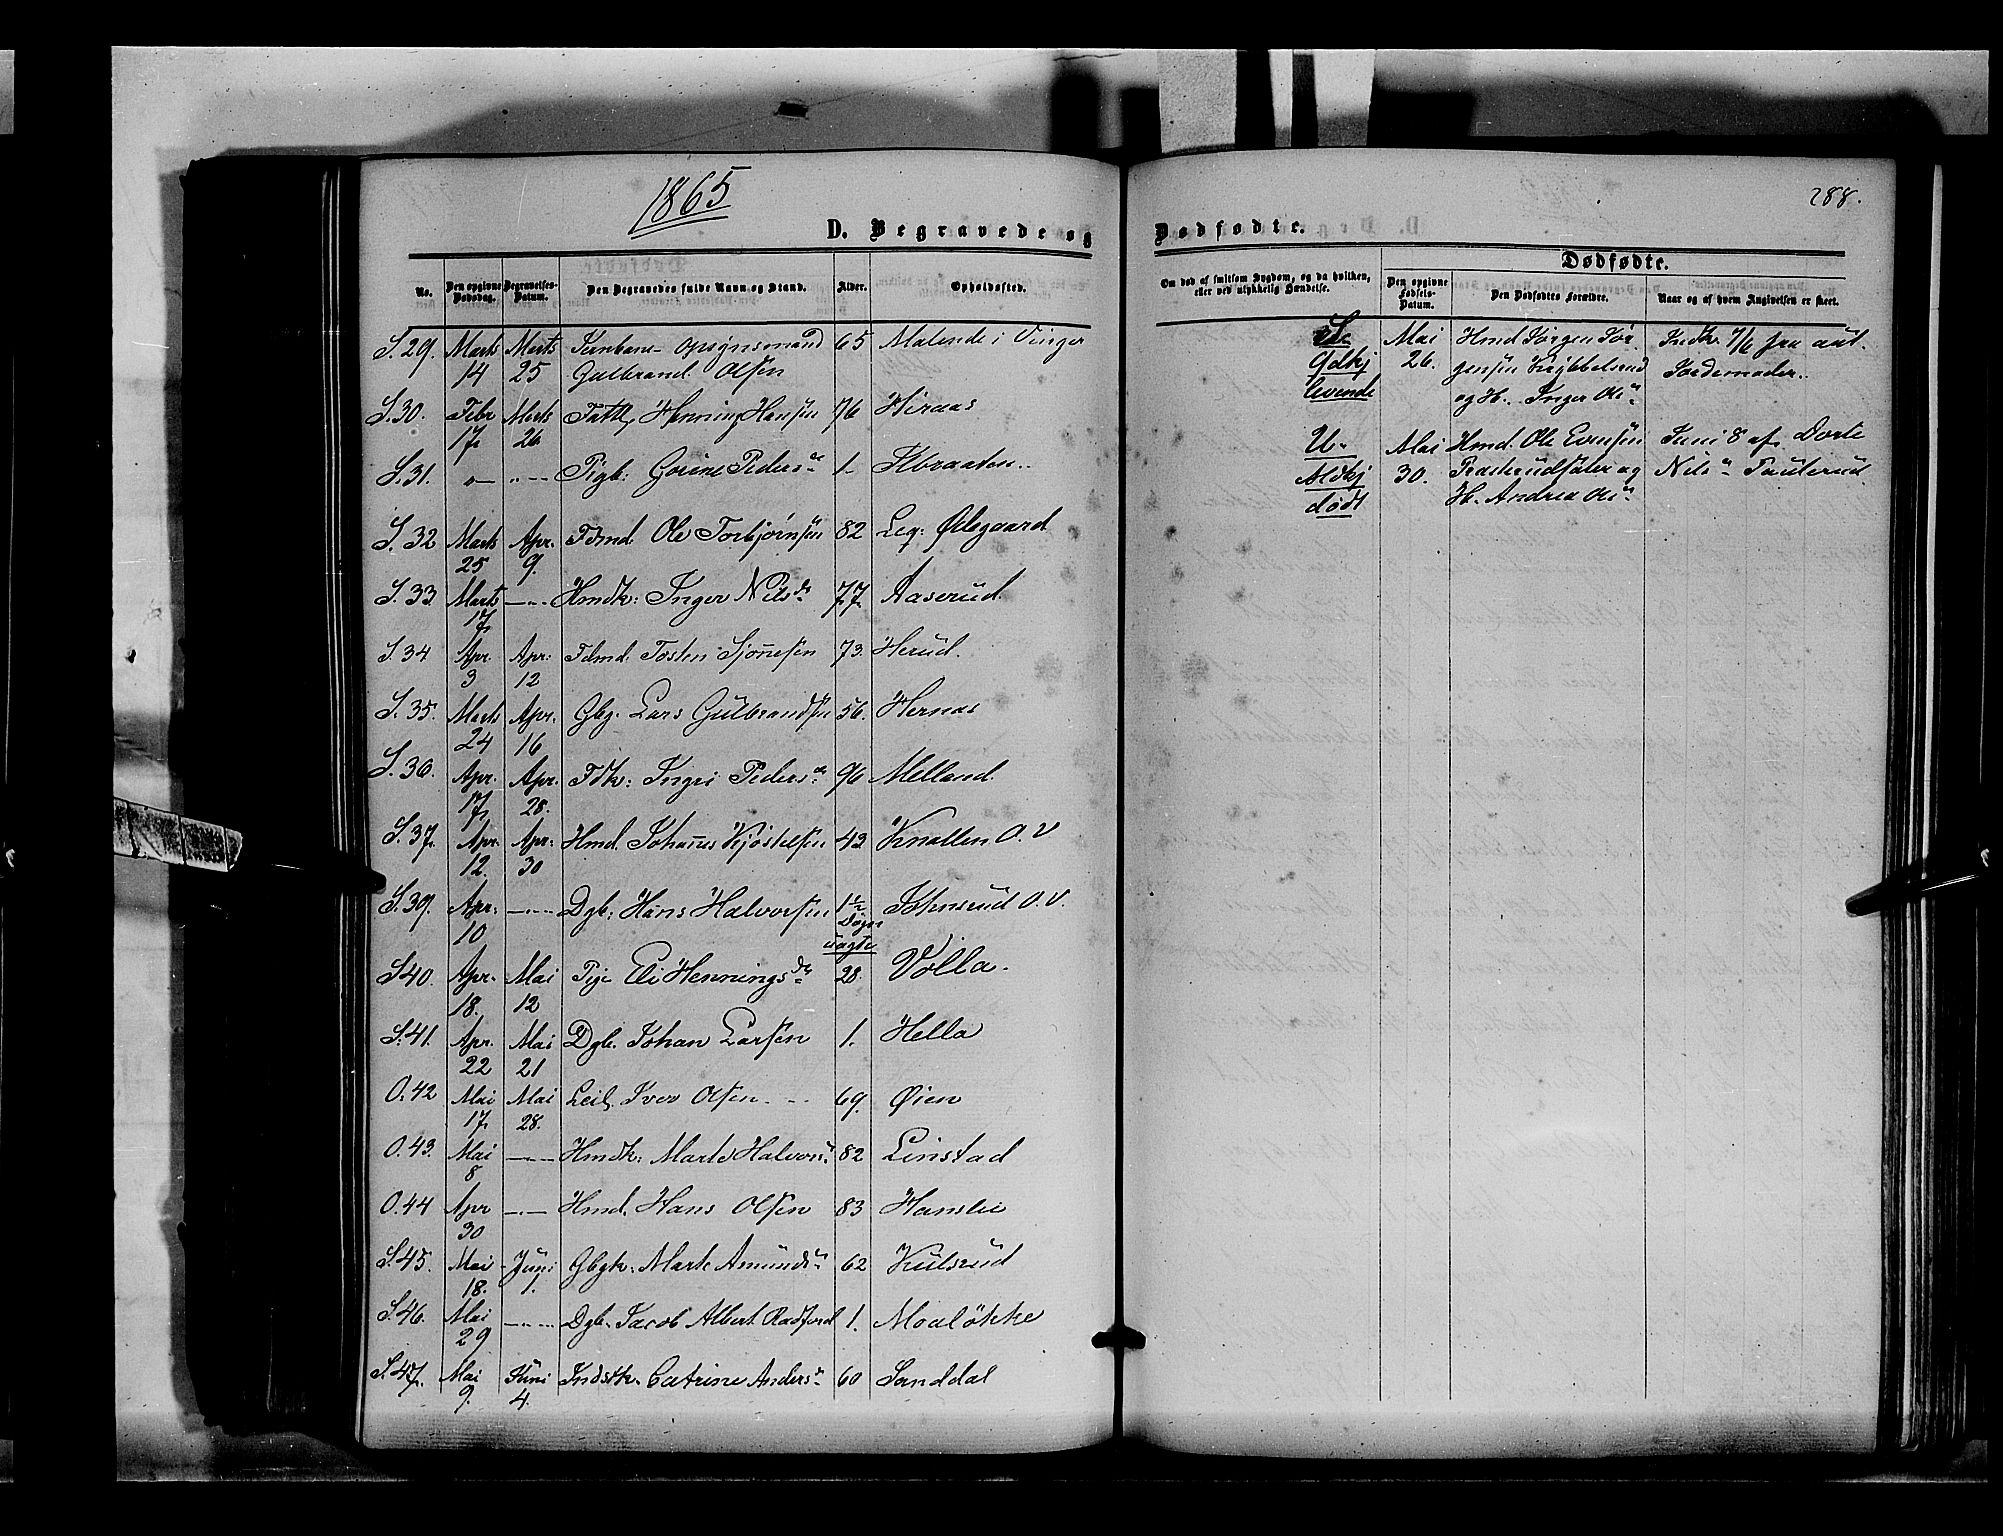 1865
288.
D. Begravede og
Dødfødte.
No. Den opgivne Dødsdag. Begravelses-Datum. Den Begravedes fulde Navn og Stand. Alder. Opholdssted.
Om død af smitsom Sygdom, og da hvilken, eller ved ulykkelig Hændelse. Den opgivne Fødsels-Datum. Dødfødte. Den Dødfødtes Forældre. Naar og af hvem Angivelsen er skeet.
S. 29. Marts 14 Marts 25 Jernbane- opsynsmand 65 Malende i Vinger
Gulbrand Olsen
S. 30. Febr 17. Marts 26 Henning Hansen 76 Hiraas
S. 31. Pigb. Gorine Peders 1. Ilbraaten
S. 32 Marts 25 Apr. 9. Fdmd. Ole Torbjørnsen 82 Leq: Ødegaard
S. 33. Marts 17. Hmdk: Inger Nilsdr 77. Aaserud.
S. 34 Apr. 3 Apr: 12 Fdmd. Tosten Sjønesen 73. Herud.
S. 35. Marts 24 Apr. 16 Gbg: Lars Gulbrandsen 56. Hernas
S. 36. Apr. 17. Apr. 28. Fdk: Ingri Pedersdr 96 Melland.
S. 37. Apr. 12. Apr: 30 Hmd. Johanes Kjøstelsen 43 Knallen O. V
S. 39. Apr. 10 Dgb: Hans Halvorsen 1½ Døgn Johnsrud O. V.
S 40. Apr. 18. Mai 12 Pige Eli Henningsdr 28. Volla.
S. 41. Apr. 22 Mai 21 Dgb. Johan Larsen 1. Hella
O. 42 Mai 17. Mai 28. Leil. Iver Olsen 69. Øien
O. 43. Mai 8 Hmdk: Marte Halvors 82 Linstad
O. 44 Apr 30 Hmd. Hans Olsen 83 Hanslie
S. 45. Mai 18. Juni 1. Gbgk: Marte Amunds 62 Kulsrud
S. 46. Mai 29 Dgb. Jacob Albert Radford 1. Moaløkke
S. 47. Mai 9. Juni 4. Indstk. Catrine Anders 60 Sanddal
S. Gdkj levende Mai 26. Hmd Jørgen Jørgensen og H. Inger Ols Indk. 7/6 fra aut. Jordemoder.
U. Aldkj dødt Mai 30. Hmd. Ole Evensen og H. Andrea Ols Juni 8 af Dorte Nils Pauterud